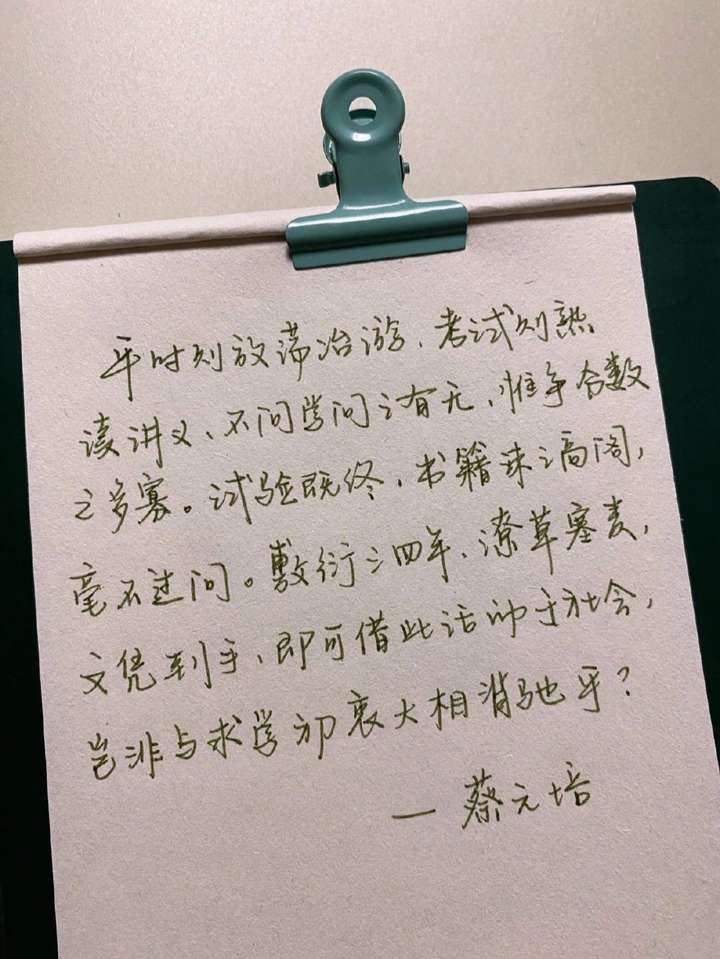 平时则放荡冶游、考试则熟
读讲义、不问学问之有无、惟争分数
之多寡。试验既终，书籍束之高阁，
毫不过问。敷衍三四年、潦草塞责，
文凭到手、即可借此活动于社会，
岂非与求学初衷大相背驰乎？
— 蔡元培